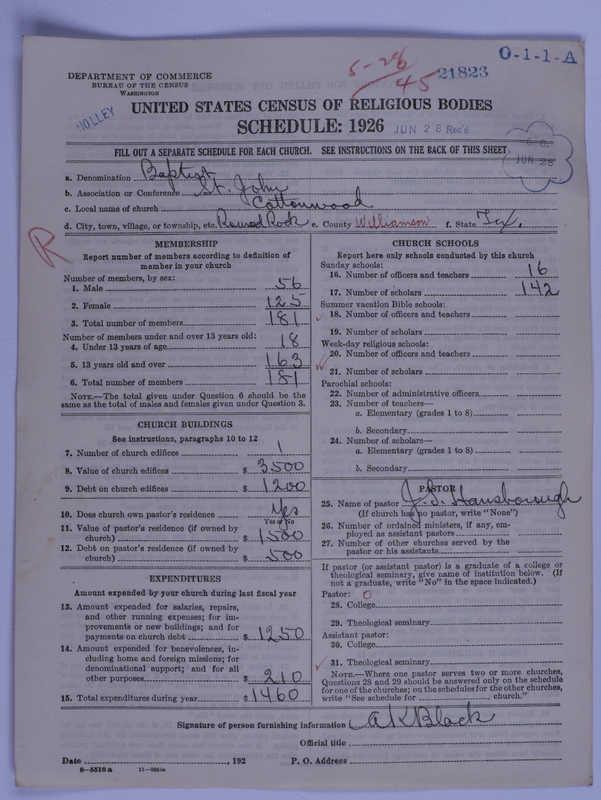 O-1-1-A
5-28
45
21823
DEPARTMENT OF COMMERCE
BUREAU OF THE CENSUS
WASHINGTON
HOLLEY
UNITED STATES CENSUS OF RELIGIOUS BODIES
SCHEDULE: 1926
JUN 28 Rec'd
JUN 28
FILL OUT A SEPARATE SCHEDULE FOR EACH CHURCH. SEE INSTRUCTIONS ON THE BACK OF THIS SHEET
a. Denomination Baptist
b. Association or Conference St. John
c. Local name of church Cottonwood
d. City, town, village, or township, etc. Round Rock e. County Williamson f. State Tex.
R
MEMBERSHIP
Report number of members according to definition of
member in your church
Number of members, by sex:
1. Male 56
2. Female 125
3. Total number of members 181
Number of members under and over 13 years old:
4. Under 13 years of age 18
5. 13 years old and over 163
6. Total number of members 181
NOTE.—The total given under Question 6 should be
same as the total of males and females given under Question 3.
CHURCH BUILDINGS
See instructions, paragraphs 10 to 12
7. Number of church edifices 1
8. Value of church edifices $ 3500
9. Debt on church edifices $ 1200
10. Does church own pastor's residence Yes
Yes or No
11. Value of pastor's residence (if owned by
church) $ 1500
12. Debt on pastor's residence (if owned by
church) $ 500
EXPENDITURES
Amount expended by your church during last fiscal year
13. Amount expended for salaries, repairs,
and other running expenses; for im-
provements or new buildings; and for
payments on church debt $ 1250
14. Amount expended for benevolences, in-
cluding home and foreign missions; for
denominational support; and for all
other purposes $ 210
15. Total expenditures during year $ 1460
CHURCH SCHOOLS
Report here only schools conducted by this church
Sunday schools:
16. Number of officers and teachers 16
17. Number of scholars 142
Summer vacation Bible schools:
18. Number of officers and teachers
19. Number of scholars
Week-day religious schools:
20. Number of officers and teachers
21. Number of scholars
Parochial schools:
22. Number of administrative officers
23. Number of teachers—
a. Elementary (grades 1 to 8)
b. Secondary
24. Number of scholars—
a. Elementary (grades 1 to 8)
b. Secondary
PASTOR
25. Name of pastor J. S. Hansborough
(If church has no pastor, write "None")
26. Number of ordained ministers, if any, em-
ployed as assistant pastors
27. Number of other churches served by the
pastor or his assistants
If pastor (or assistant pastor) is a graduate of a college or
theological seminary, give name of institution below. (If
not a graduate, write "No" in the space indicated.)
Pastor: 0
28. College
29. Theological seminary
Assistant pastor:
30. College
31. Theological seminary
NOTE.—Where one pastor serves two or more churches,
Questions 28 and 29 should be answered only on the schedule
for one of the churches; on the schedules for the other churches,
write "See schedule for church."
Signature of person furnishing information A K Black
Official title
Date , 192 P. O. Address
8-5518a 11-9054a